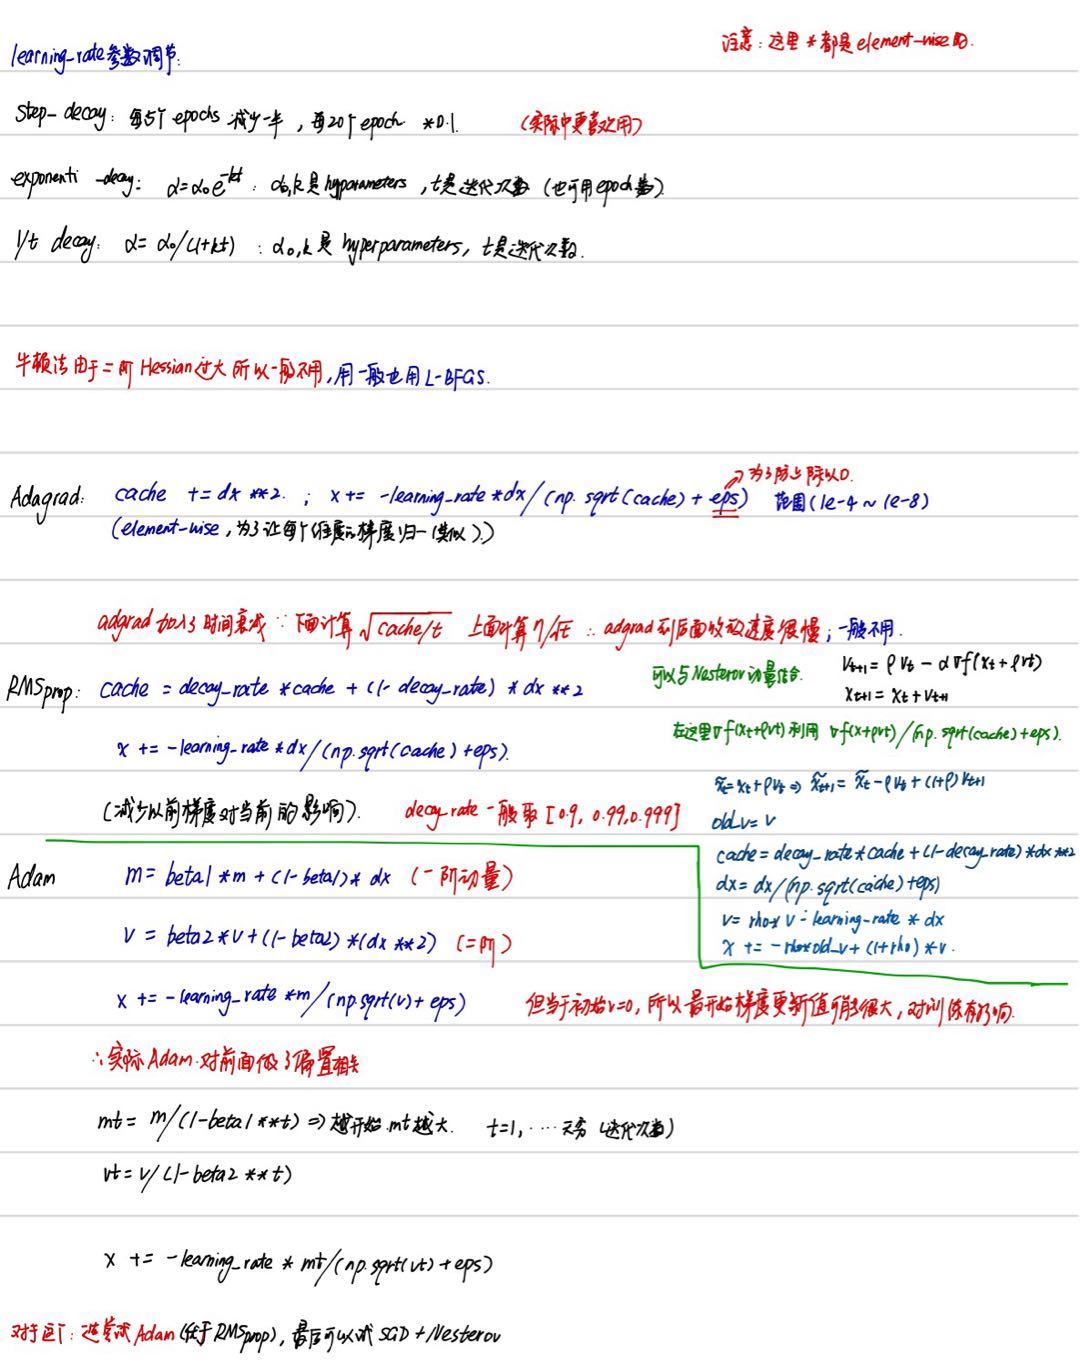 注意：这里*都是element-wise的.
learning_rate参数调节:
step-decay: 每5个epochs减少一半，每20个epoch *0.1. (实际中更喜欢用)
exponenti-decay: α=α₀e^-kt : α₀,k是hyparameters，t是迭代次数 (也可用epoch数)
1/t decay: α=α₀/(1+kt) : α₀,k是hyperparameters，t是迭代次数.
牛顿法由于二阶Hessian过大所以一般不用,用一般也用L-BFGS.
为了防止除以0.
Adagrad: cache += dx **2. ; x += -learning_rate *dx/(np.sqrt(cache) + eps) 范围(1e-4 ~ 1e-8)
(element-wise，为了让每个维度的梯度归一(类似).)
adgrad加入了时间衰减 ∵ 下面计算√cache/t 上面计算η/√t ∴ adgrad到后面收敛速度很慢；一般不用.
RMSprop: cache = decay_rate *cache + (1- decay_rate) * dx **2
x += -learning_rate *dx/(np.sqrt(cache)+eps).
(减少以前梯度对当前的影响). decay_rate一般取[0.9, 0.99, 0.999]
可以与Nesterov动量结合. Vt+1 = ρVt - α∇f(xt+ρvt)
xt+1 = xt + vt+1
在这里∇f(xt+ρvt)利用 ∇f(x+ρvt)/(np.sqrt(cache)+eps).
x̃t=xt+ρvt ⇒ x̃t+1 = x̃t - ρvt + (1+ρ)vt+1
old_v = v
cache = decay_rate*cache + (1-decay_rate)*dx**2
dx = dx/(np.sqrt(cache)+eps)
v = rho* v - learning_rate * dx
x += -rho*old_v + (1+rho) *v.
Adam m= beta1 *m + (1-beta1)* dx (一阶动量)
v = beta2*v+(1-beta2)*(dx **2) (二阶)
x += -learning_rate *m/(np.sqrt(v)+ eps) 但由于初始v=0，所以最开始梯度更新值可能很大，对训练有影响.
∴实际Adam对前面做了偏置相关
mt = m/(1-beta1**t) ⇒ 越开始mt越大. t=1, ⋯⋯ 无穷 (迭代次数)
vt = v/(1-beta2 **t)
x += -learning_rate * mt/(np.sqrt(vt)+eps)
Adam(优于RMSprop)，最后可以试SGD+Nesterov